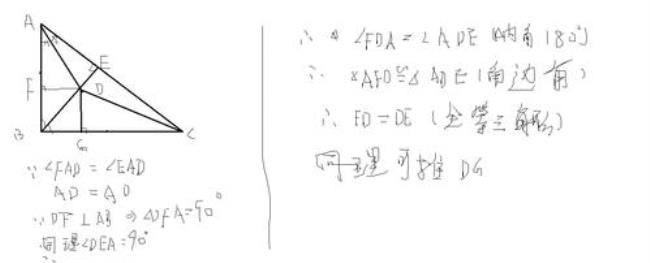 A
E
F
D
B
G
C
∵ ∠FAD = ∠EAD
AD = AD
∵ DF ⊥ AB ⇒ ∠DFA = 90°
同理∠DEA = 90°
∴
∴ ∠FDA = ∠ADE (内角180°)
∴ △AFD≌△ADE (角边角)
∴ FD = DE (全等三角形)
同理可推 DG